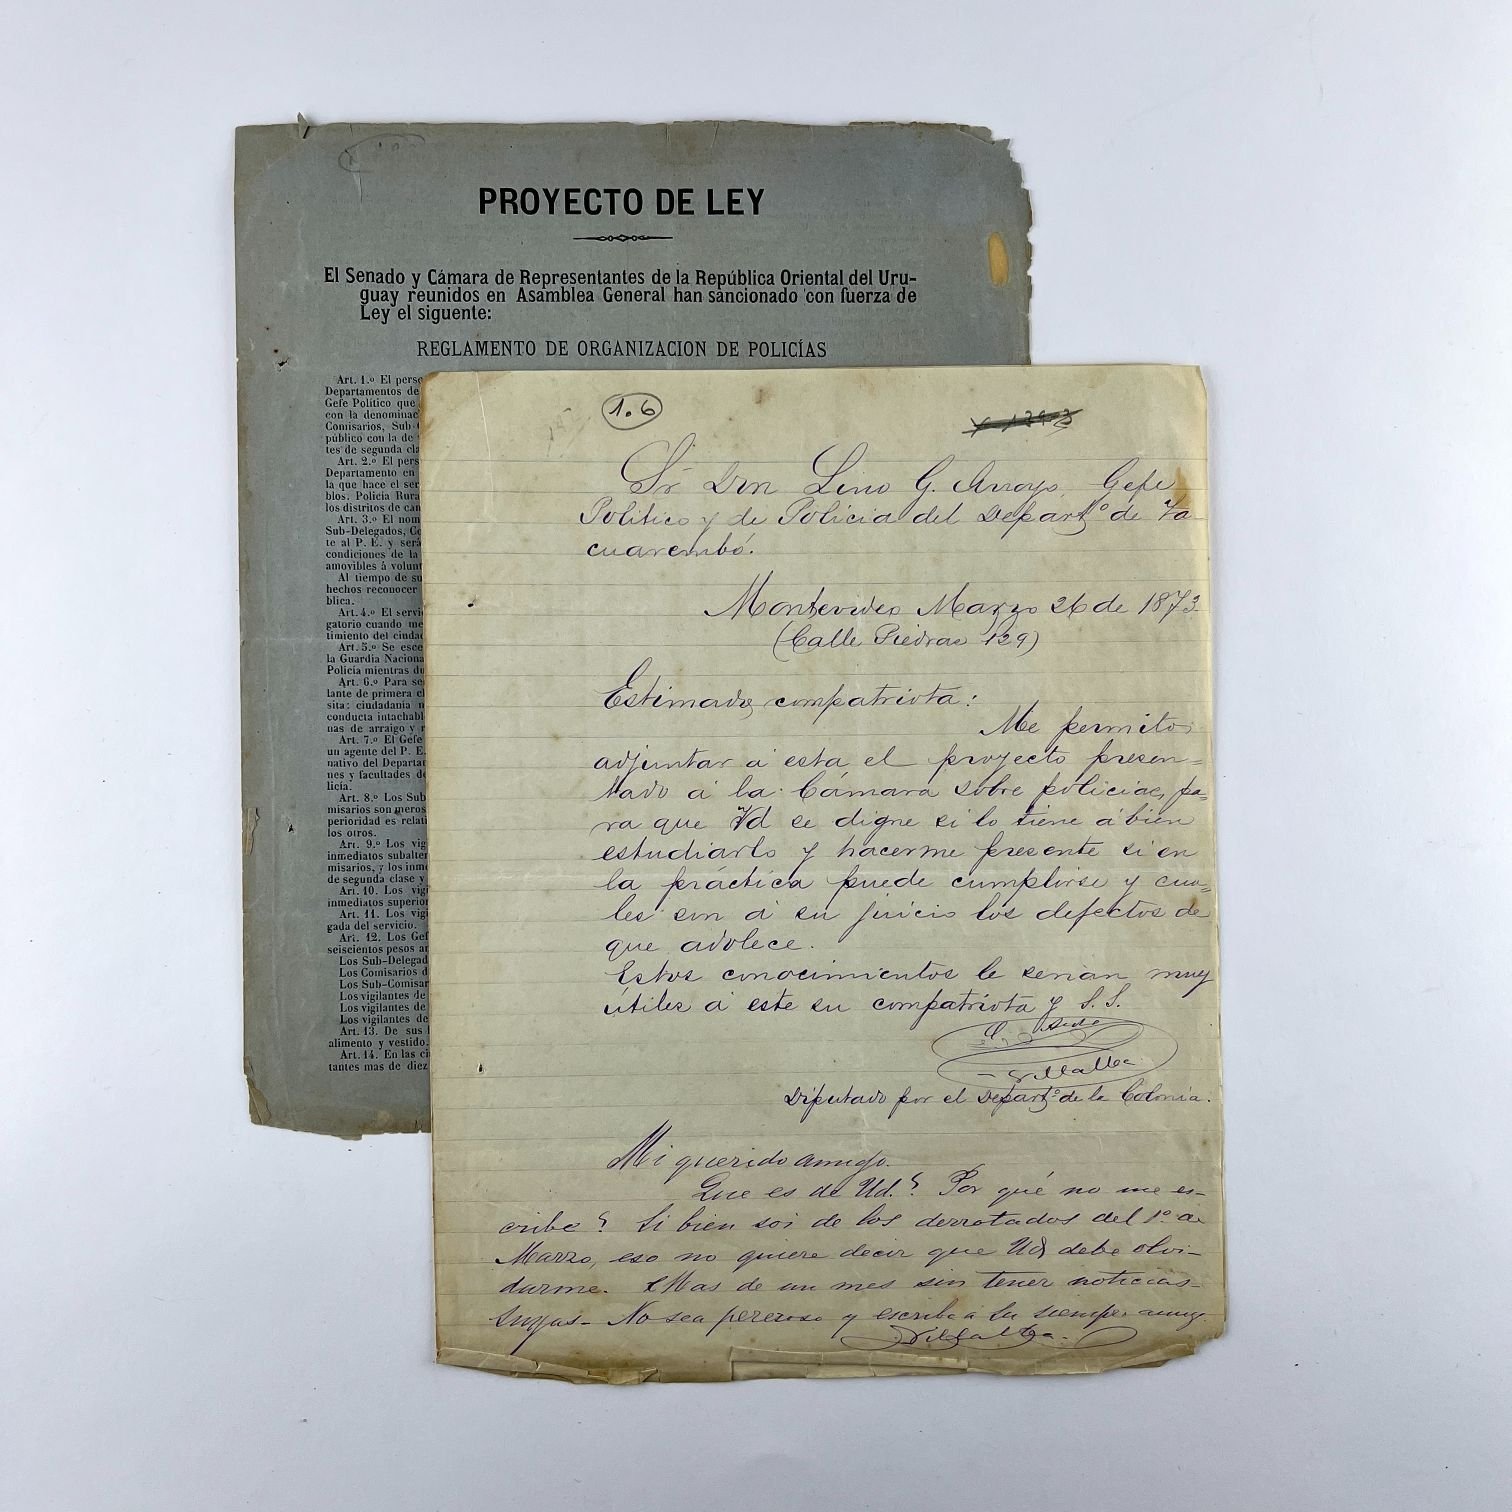 PROYECTO DE LEY
El Senado y Cámara de Representantes de la República Oriental del Uru-
guay reunidos en Asamblea General han sancionado con fuerza de
Ley el siguente:
REGLAMENTO DE ORGANIZACION DE POLICÍAS
Art. 1.º El perso
Departamentos de
Gefe Político que
con la denominac
Comisarios, Sub-
público con la de
tes de segunda cla
Art. 2.º El pers
Departamento en
la que hace el ser
blos. Policia Rura
los distritos de can
Art. 3.º El nom
Sub-Delegados, Co
te al P. E. y será
condiciones de la
amovibles á volunt
Al tiempo de su
hechos reconocer
blica.
Art. 4.º El servi
gatorio cuando me
timiento del ciudad
Art. 5.º Se esce
la Guardia Naciona
Policía mientras du
Art. 6.º Para se
lante de primera cl
sita: ciudadanía n
conducta intachabl
nas de arraigo y r
Art. 7.º El Gefe
un agente del P. E.
nativo del Departa
nes y facultades de
licia.
Art. 8.º Los Sub
misarios son meros
perioridad es relati
los otros.
Art. 9.º Los vig
inmediatos subalter
misarios, y los inme
de segunda clase y
Art. 10. Los vigi
inmediatos superior
Art. 11. Los vigi
gada del servicio.
Art. 12. Los Gef
seiscientos pesos an
Los Sub-Delegad
Los Comisarios d
Los Sub-Comisar
Los vigilantes de
Los vigilantes de
Los vigilantes de
Art. 13. De sus
alimento y vestido.
Art. 14. En las ci
tantes mas de diez
1.6
Sr Don Lino G. Arroyo, Gefe
Politico y de Policia del Departº de Ta
cuarembó.
Montevideo Marzo 26 de 1873
(Calle Piedras 129)
Estimado compatriota:
Me permito
adjuntar á esta el proyecto presen=
tado á la Cámara sobre policias, pa=
ra que Vd se digne si lo tiene á bien
estudiarlo y hacerme presente si en
la práctica puede cumplirse y cua=
les son á su juicio los defectos de
que adolece.
Estos conocimientos le serian muy
útiles á este su compatriota y S. S.
Villalba
Diputado por el Departº de la Colonia.
Mi querido amigo.
Que es de Ud.? Por qué no me es-
cribe? Si bien soi de los derrotados del 1º de
Marzo, eso no quiere decir que Ud debe olvi-
darme. Mas de un mes sin tener noticias
suyas- No sea perezoso y escriba á su siempre amigo
Villalba.